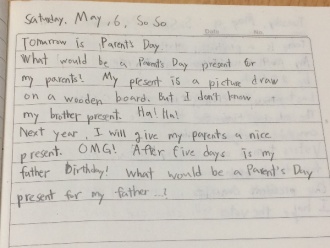 Saturday, May, 6, So So
Tomorrow is Parent's Day
What would be a Parent's Day present for
my parents! My present is a picture draw
on a wooden board. But I don't know
my brother present. Ha! Ha!
Next year, I will give my parents a nice
present. OMG! After five days is my
father Birthday! What would be a Parent's Day
present for my father..!